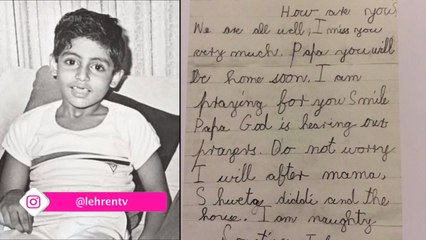 How are you?
We are all well, I miss you
very much. Papa you will
be home soon. I am
praying for you Smile
Papa God is hearing our
prayers. Do not worry
I will after mama,
Shweta diddi and the
house. I am naughty
@lehrentv